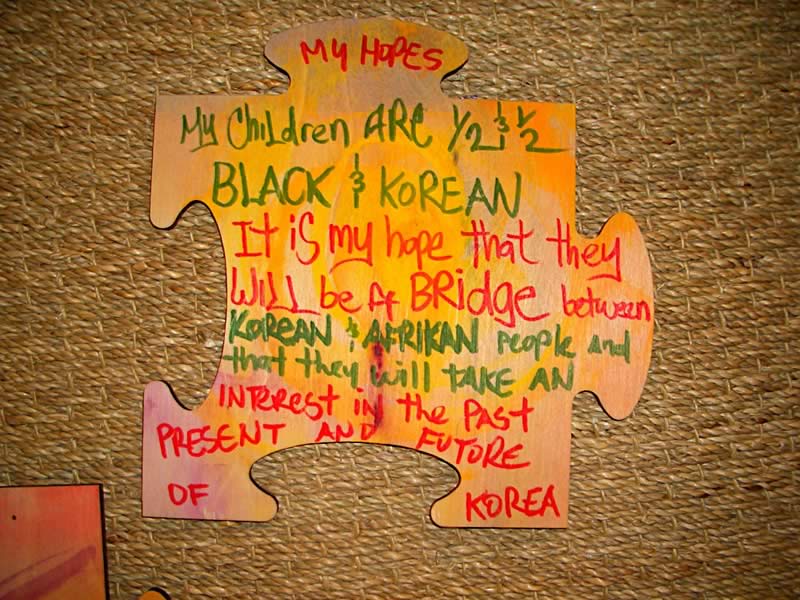 My HOPES
My Children ARE 1/2 & 1/2
BLACK & KOREAN
It is my hope that they
WiLL be A BRidge between
KOREAN & AFRIKAN people and
that they will TAKE AN
INTERest in the PAST
PRESENT AND FUTURE
OF KOREA